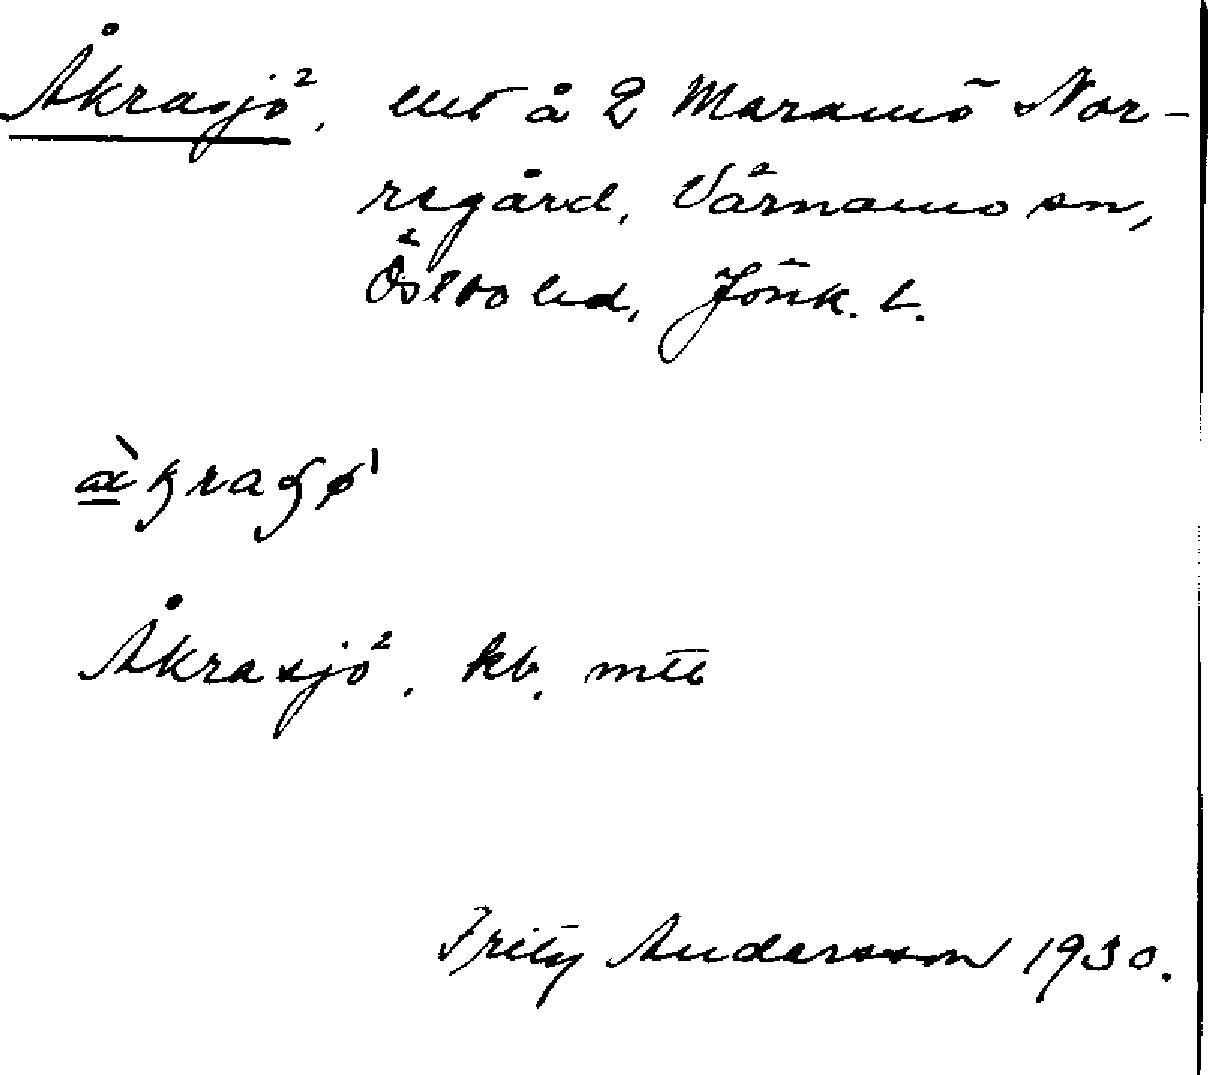 Åkrasjö, lht å 2 Maramö Nor-
regård, Värnamo sn,
Östbo hd, Jönk. l.
Åkrasjö, kb.
Fritz Andersson 1930.